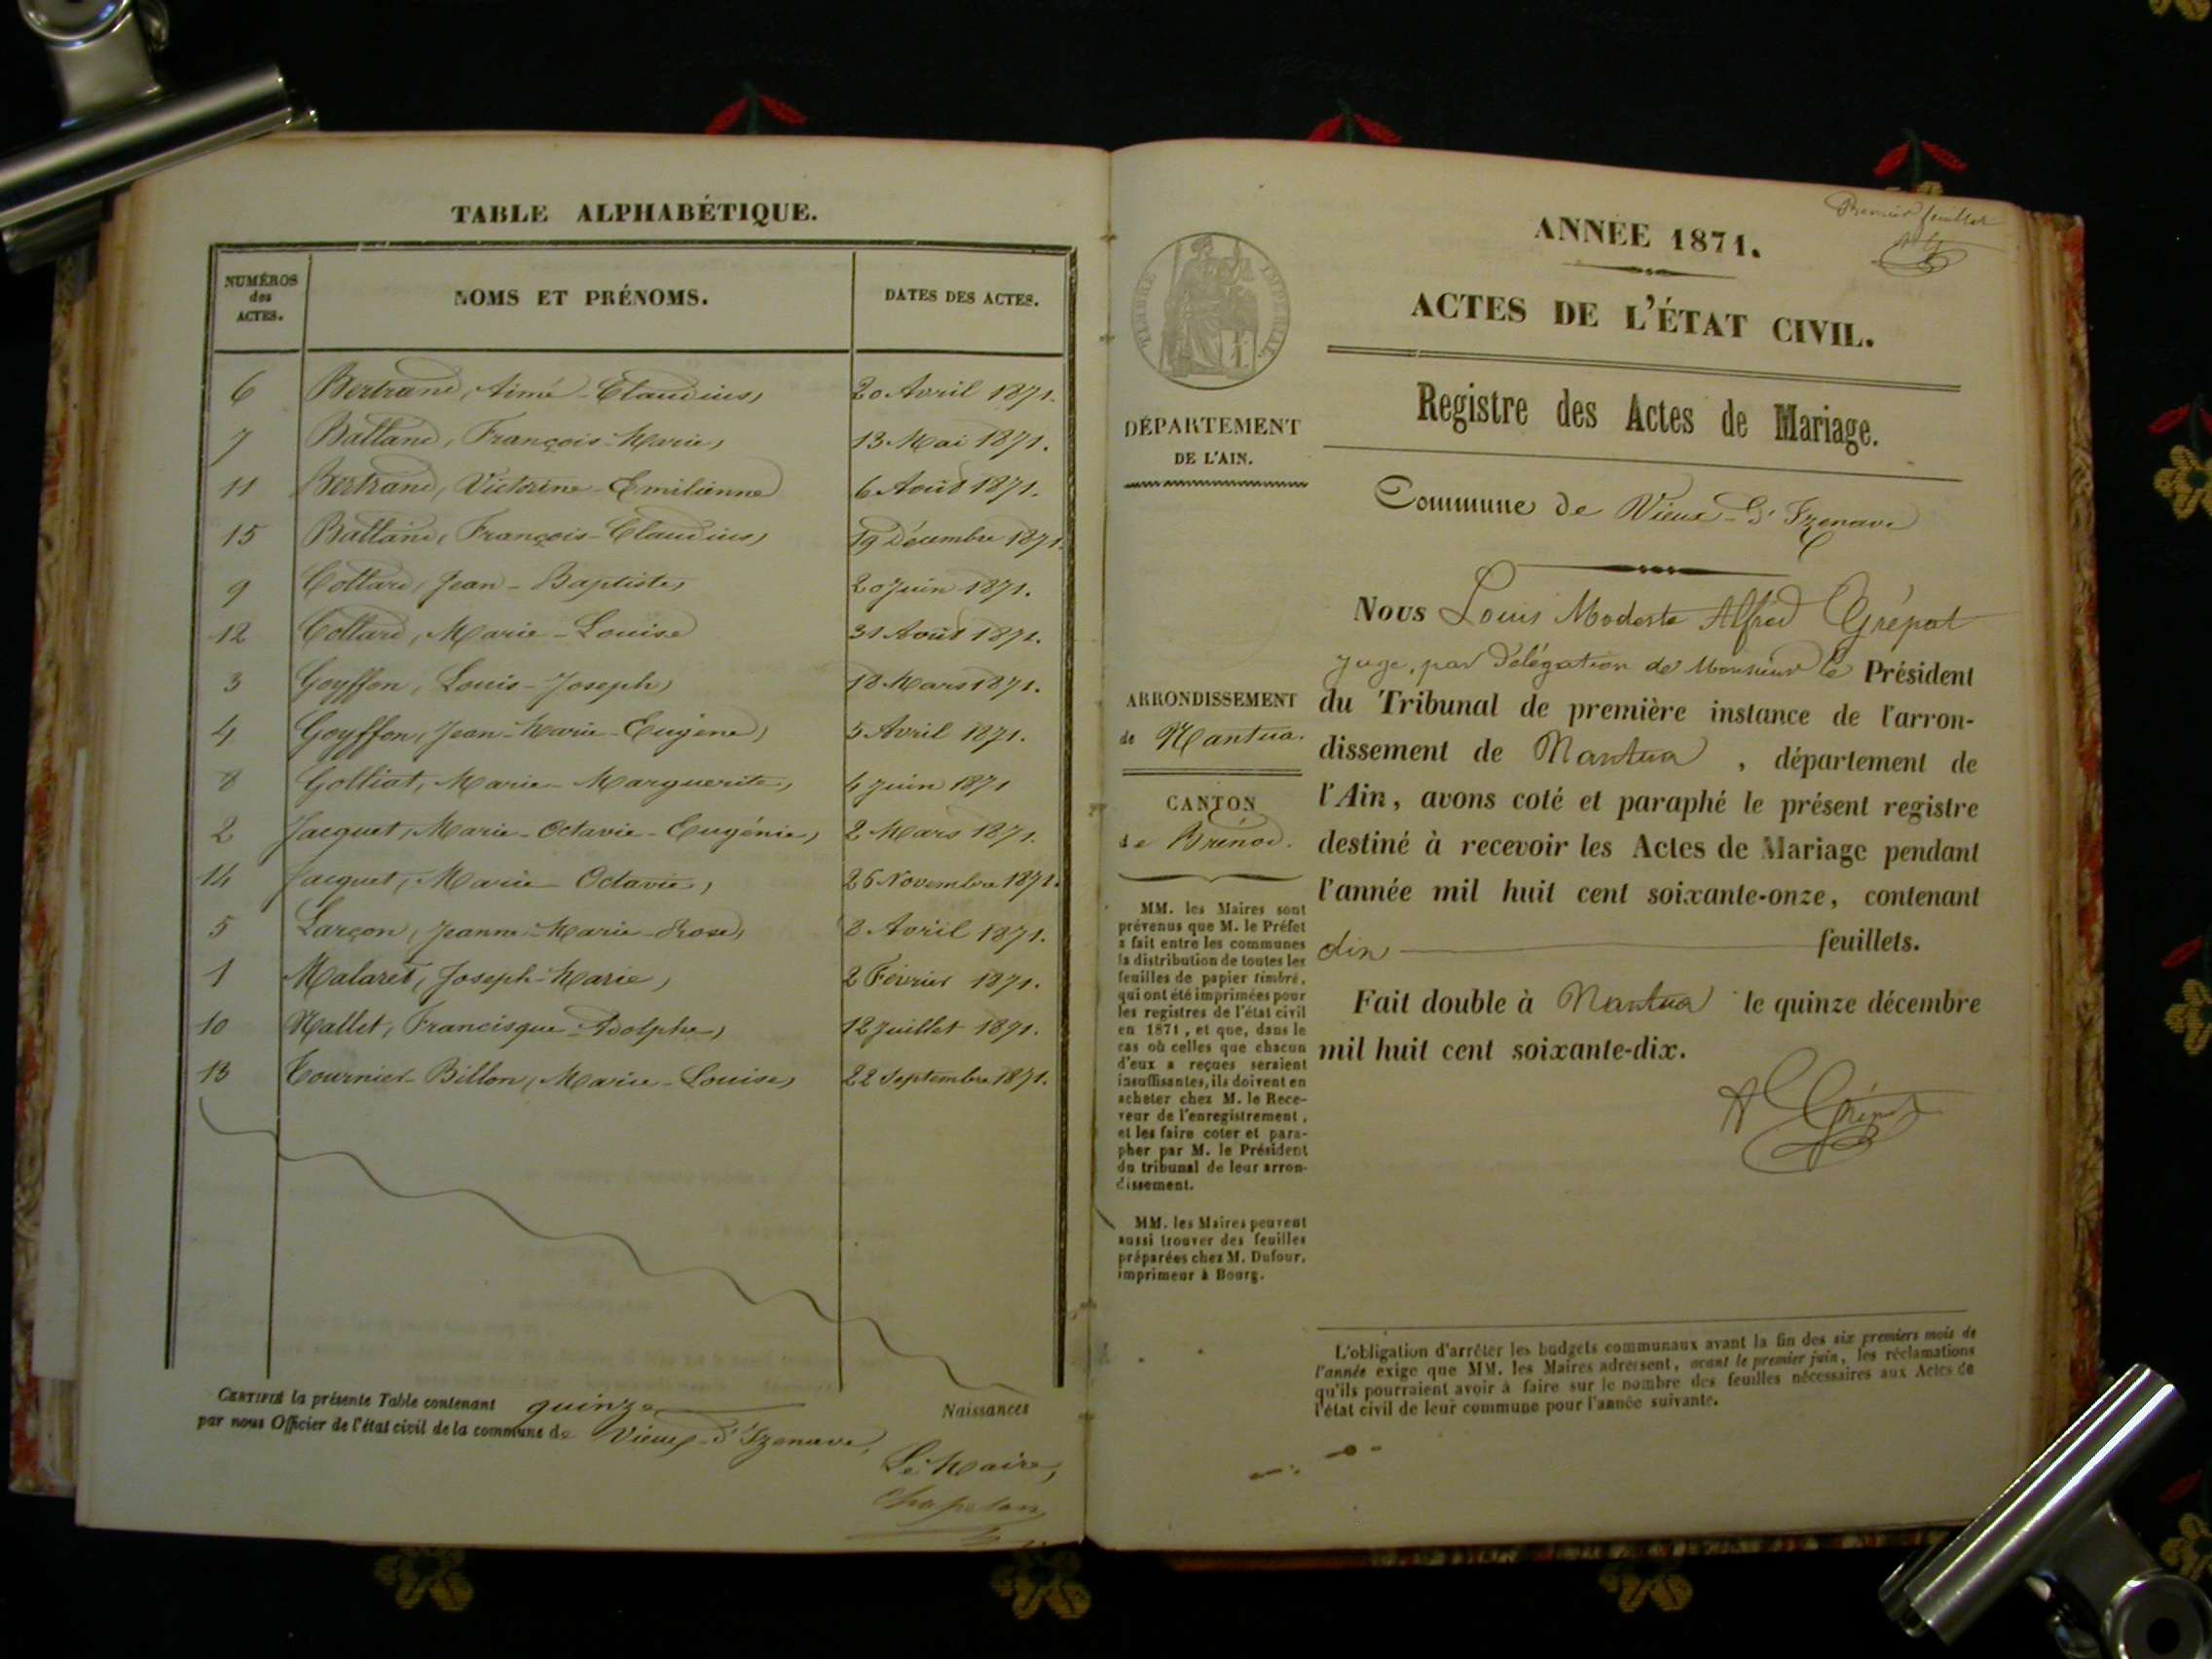 TABLE ALPHABÉTIQUE.
NUMÉROS des ACTES.
NOMS ET PRÉNOMS.
DATES DES ACTES.
6 Bertrand, Aimé-Claudius, 20 Avril 1871.
7 Balland, François-Marie, 13 Mai 1871.
11 Bertrand, Victorine-Emilienne 6 Août 1871.
15 Balland, François-Claudius, 19 Décembre 1871.
9 Collard, Jean-Baptiste, 20 Juin 1871.
12 Collard, Marie-Louise 31 Août 1871.
3 Goyffon, Louis-Joseph, 18 Mars 1871.
4 Goyffon, Jean-Marie-Eugène, 5 Avril 1871.
8 Golliat, Marie-Marguerite, 4 Juin 1871
2 Jacquet, Marie-Octavie-Eugénie, 2 Mars 1871.
14 Jacquet, Marie-Octavie, 26 Novembre 1871.
5 Larçon, Jeanne-Marie-Rose, 8 Avril 1871.
1 Malaret, Joseph-Marie, 2 Février 1871.
10 Nallet, Francisque-Adolphe, 12 Juillet 1871.
13 Tournier-Billon, Marie-Louise, 22 Septembre 1871.
CERTIFIÉ la présente Table contenant quinze Naissances
par nous Officier de l'état civil de la commune de Vieux-d'Izenave,
Le Maire,
Chapelan
Premier feuillet
TIMBRE IMPÉRIAL
DÉPARTEMENT
DE L'AIN.
ARRONDISSEMENT
de Nantua.
CANTON
de Brénod.
MM. les Maires sont
prévenus que M. le Préfet
a fait entre les communes
la distribution de toutes les
feuilles de papier timbré,
qui ont été imprimées pour
les registres de l'état civil
en 1871, et que, dans le
cas où celles que chacun
d'eux a reçues seraient
insuffisantes, ils doivent en
acheter chez M. le Rece-
veur de l'enregistrement,
et les faire coter et para-
pher par M. le Président
du tribunal de leur arron-
dissement.
MM. les Maires peuvent
aussi trouver des feuilles
préparées chez M. Dufour,
imprimeur à Bourg.
ANNÉE 1871.
ACTES DE L'ÉTAT CIVIL.
Registre des Actes de Mariage.
Commune de Vieux-d'Izenave
Nous Louis Modeste Alfred Grépat
juge, par délégation de Monsieur le Président
du Tribunal de première instance de l'arron-
dissement de Nantua, département de
l'Ain, avons coté et paraphé le présent registre
destiné à recevoir les Actes de Mariage pendant
l'année mil huit cent soixante-onze, contenant
dix feuillets.
Fait double à Nantua le quinze décembre
mil huit cent soixante-dix.
L'obligation d'arrêter les budgets communaux avant la fin des six premiers mois de
l'année exige que MM. les Maires adressent, avant le premier juin, les réclamations
qu'ils pourraient avoir à faire sur le nombre des feuilles nécessaires aux Actes de
l'état civil de leur commune pour l'année suivante.